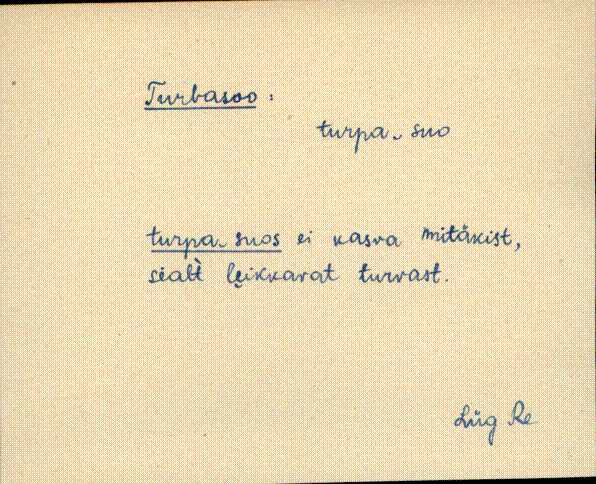 Turbasoo :
turpa‿suo
turpa‿suos ei kasva mitäkist,
sialt̀ lęikkavat turvast.
Lüg Re